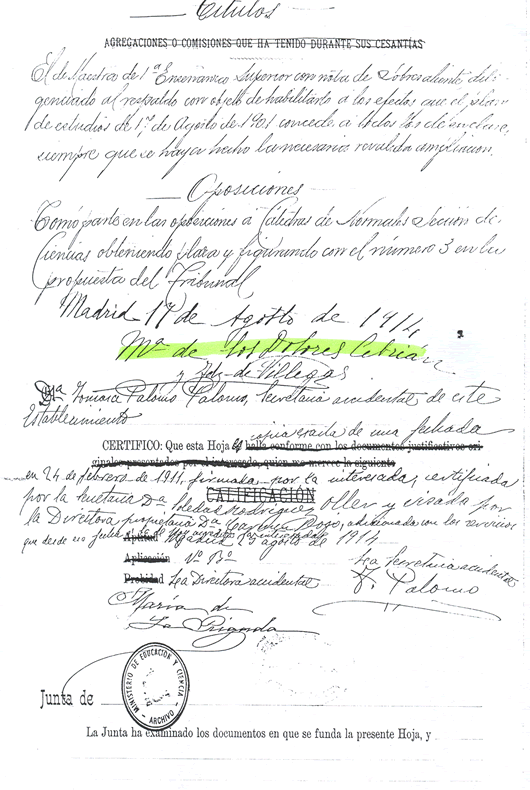 Títulos
AGREGACIONES O COMISIONES QUE HA TENIDO DURANTE SUS CESANTÍAS
El de Maestra de 1ª Enseñanza Superior con nota de Sobresaliente dili-
genciado al respaldo con objeto de habilitarlo a los efectos que el plan
de estudios de 17 de Agosto de 1901 concede a todos los de su clase,
siempre que se haya hecho la necesaria revalida ampliación.
Oposiciones
Tomó parte en las oposiciones a Cátedras de Normales Sección de
Ciencias obteniendo plaza y figurando con el número 3 en la
propuesta del Tribunal
Madrid 17 de Agosto de 1914
Mª de los Dolores Cebrián
y Fdez de Villegas
Dª Tomasa Palomo Palomo, Secretaria accidental de este
Establecimiento
CERTIFICO: Que esta Hoja es copia exacta de una fechada
halla conforme con los documentos justificativos ori-
ginales presentados por el interesado, quien me merece la siguiente
en 24 de febrero de 1911, firmada por la interesada, certificada
CALIFICACIÓN
por la Secretaria Dª Soledad Rodríguez Oller y visada por
la Directora propietaria Dª Carmen Rojo, adicionada con los servicios
que desde
Aptitud
Madrid 25 agosto de 1914
Aplicación Vº Bº
La Secretaria accidental
Probidad La Directora accidental
T. Palomo
María de
La Riganda
MINISTERIO DE EDUCACIÓN Y CIENCIA
ARCHIVO
Junta de
La Junta ha examinado los documentos en que se funda la presente Hoja, y